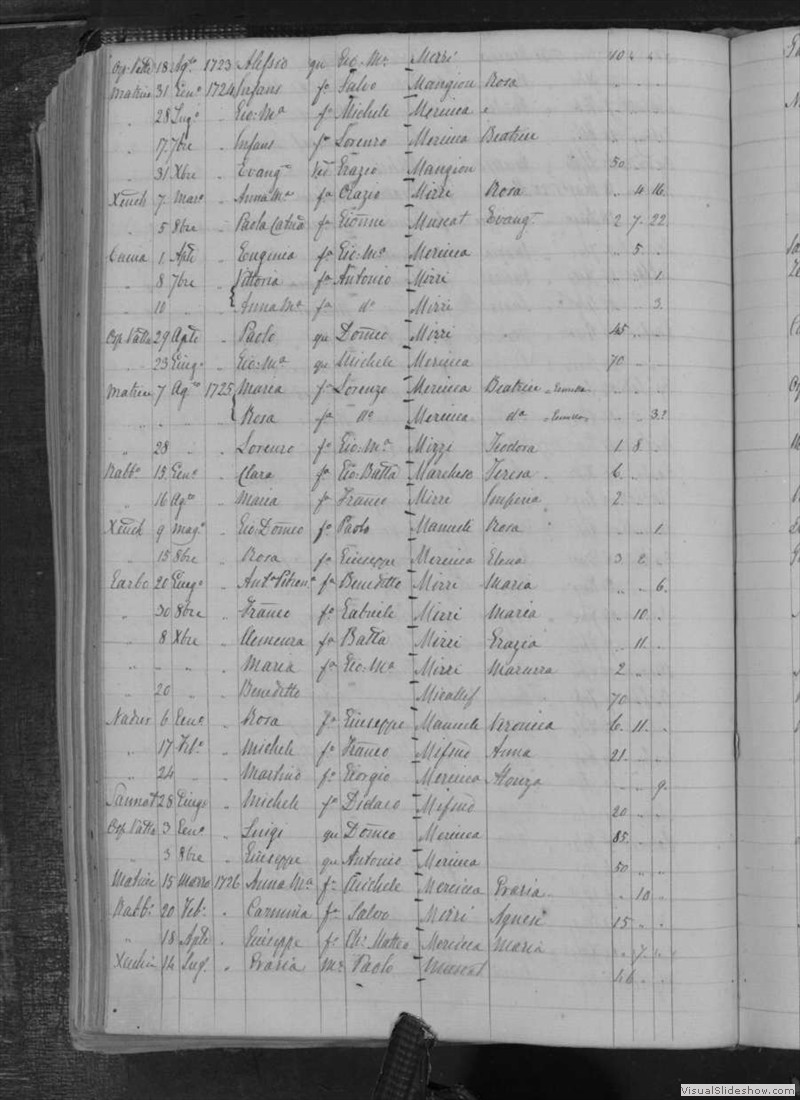 Osp. Vatta 18 Ag.to 1723 Alessio qu Gio: M.a Mizzi 10 " "
Matrice 31 Gen.o 1724 Infans f.o Salvo Mangion Rosa
" 28 Lug.o " Gio: M.a f.o Michele Mercieca
" 17 7bre " Infans f.o Lorenzo Mercieca Beatrice
" 31 Xbre " Evang.ta Grazio Mangion 50
Xeuch 7 Mar.o " Anna M.a f.a Orazio Mizzi Rosa " 4 16
" 5 8bre " Paola f.a Muscat Evang.ta 2 7 22
1 Aple " Eugenia f.a Gio: M.a Mercieca " 5
" 8 7bre " Vittoria f.a Antonio Mizzi " " 1
" 10 " " Anna M.a f.a d.o Mizzi " " 3
Osp. Vatta 29 Aple " Paolo qu Dom.co Mizzi 45
" 23 Giug.o " Gio: M.a qu Michele Mercieca 70
Matrice 7 Ag.to 1725 Maria f.a Lorenzo Mercieca Beatrice
" " " Rosa f.a d.o Mercieca d.a " " 3
" 28 " " Lorenzo f.o Gio: M.a Mizzi Teodora 1 8
Rabb.o 13 Gen.o " Clara f.a Gio: Batta Marchese Teresa 6
" 16 Ag.to " Maria f.a Franco Mizzi 2
Xeuch 9 Mag.o " Gio: Dom.co f.o Paolo Manueli Rosa " " 1
" 15 8bre " Rosa f.a Giuseppe Mercieca Elena 3 2
20 Giug.o " f.a Benedetto Mizzi Maria " " 6
" 30 8bre " Franco f.o Gabriele Mizzi Maria " 10
" 8 Xbre " Clemenza f.a Batta Mizzi Grazia " 11
" " " Maria f.a Gio: M.a Mizzi 2
" 20 " Benedetto Micallef 70
Nadur 6 Gen.o " Rosa f.a Giuseppe Manueli Veronica 6 11
" 17 Feb.o " Michele f.o Franco Mifsud Anna 21
" 24 " Martino f.o Giorgio Mercieca " " 9
Sannat 28 Giug.o " Michele f.o Didaco Mifsud 20
Osp. Vatta 3 Gen.o " Luigi qu Dom.co Mercieca 85
" 3 8bre " Giuseppe qu Antonio Mercieca 50
Matrice 15 Marzo 1726 Anna M.a f.a Michele Mercieca Grazia " 10
Rabb.o 20 Feb.o " Carmina f.a Salvo Mizzi Agnese 15
" 18 Aple " Giuseppe f.o Matteo Mercieca Maria " 7
14 Lug.o " Grazia Paolo Muscat 46
VisualSlideshow.com